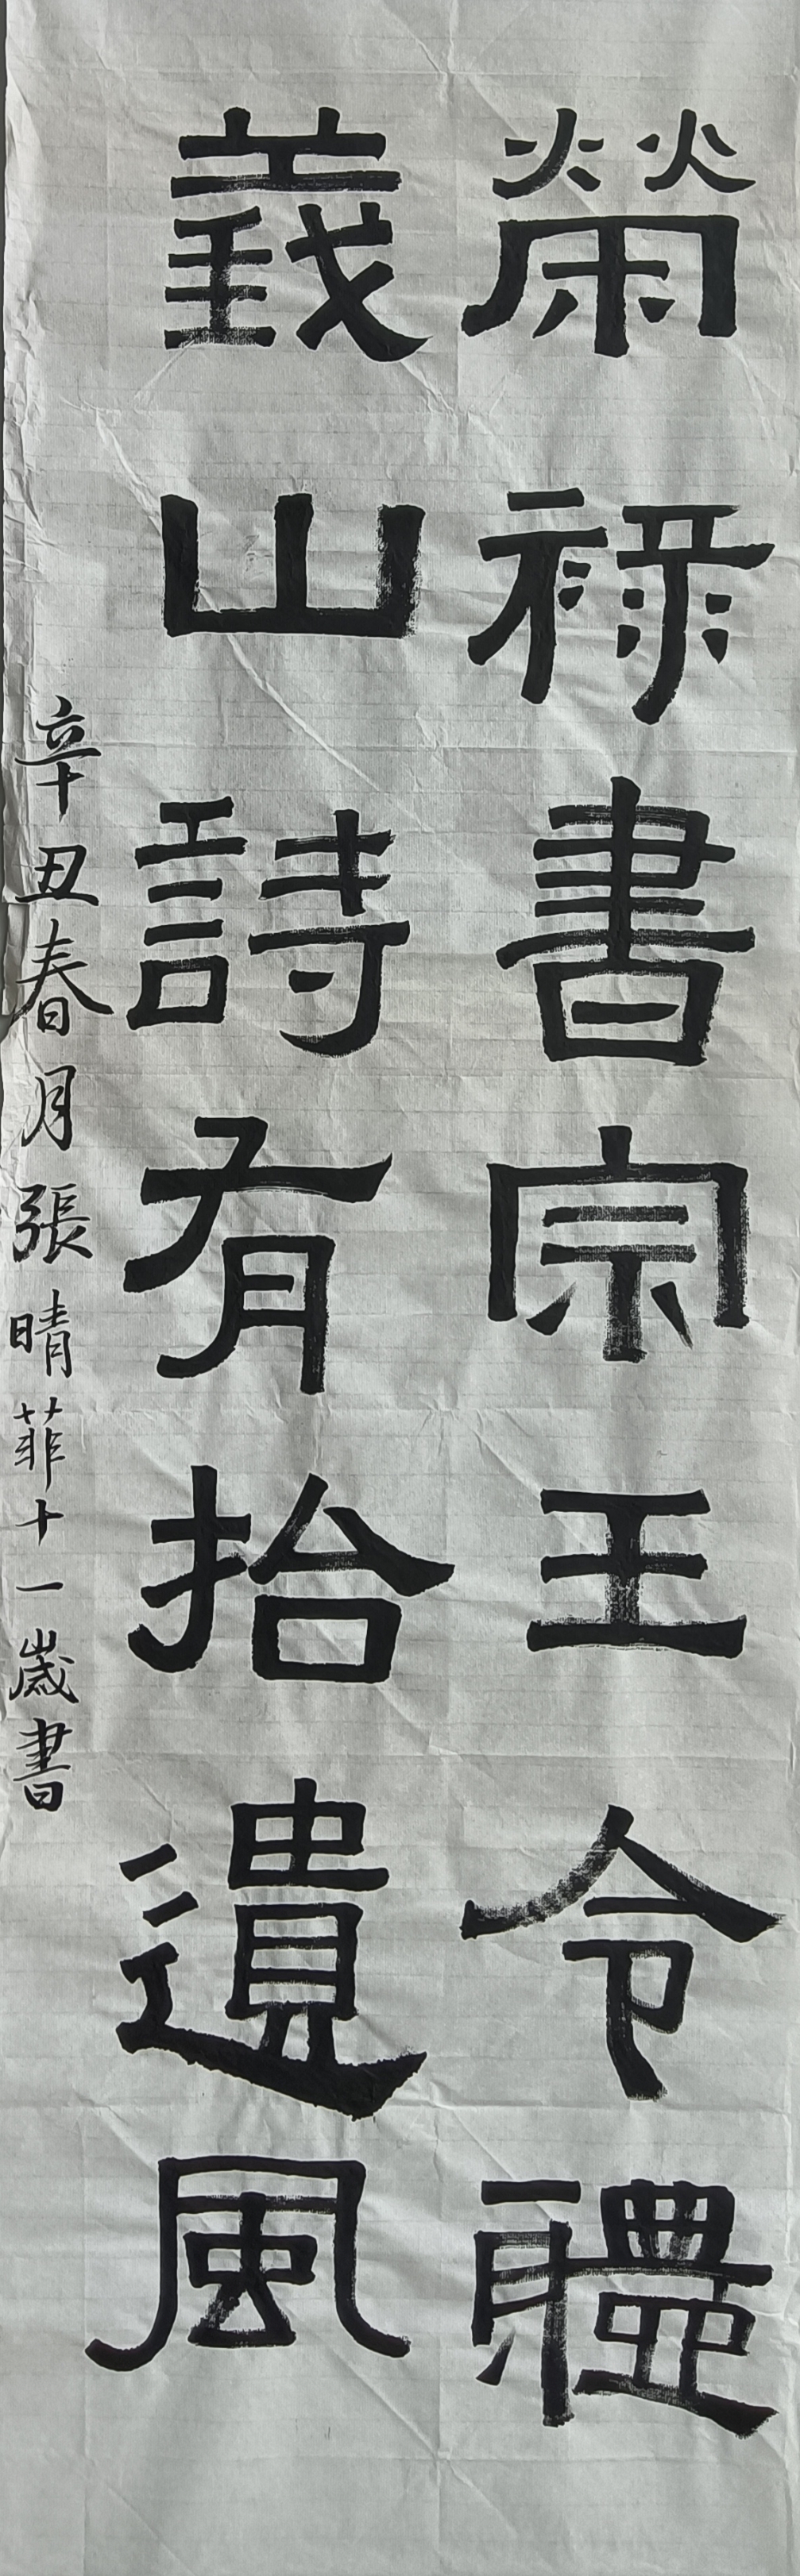 榮祿書宗王令體
義山詩有拾遺風
辛丑春月張晴菲十一歲書